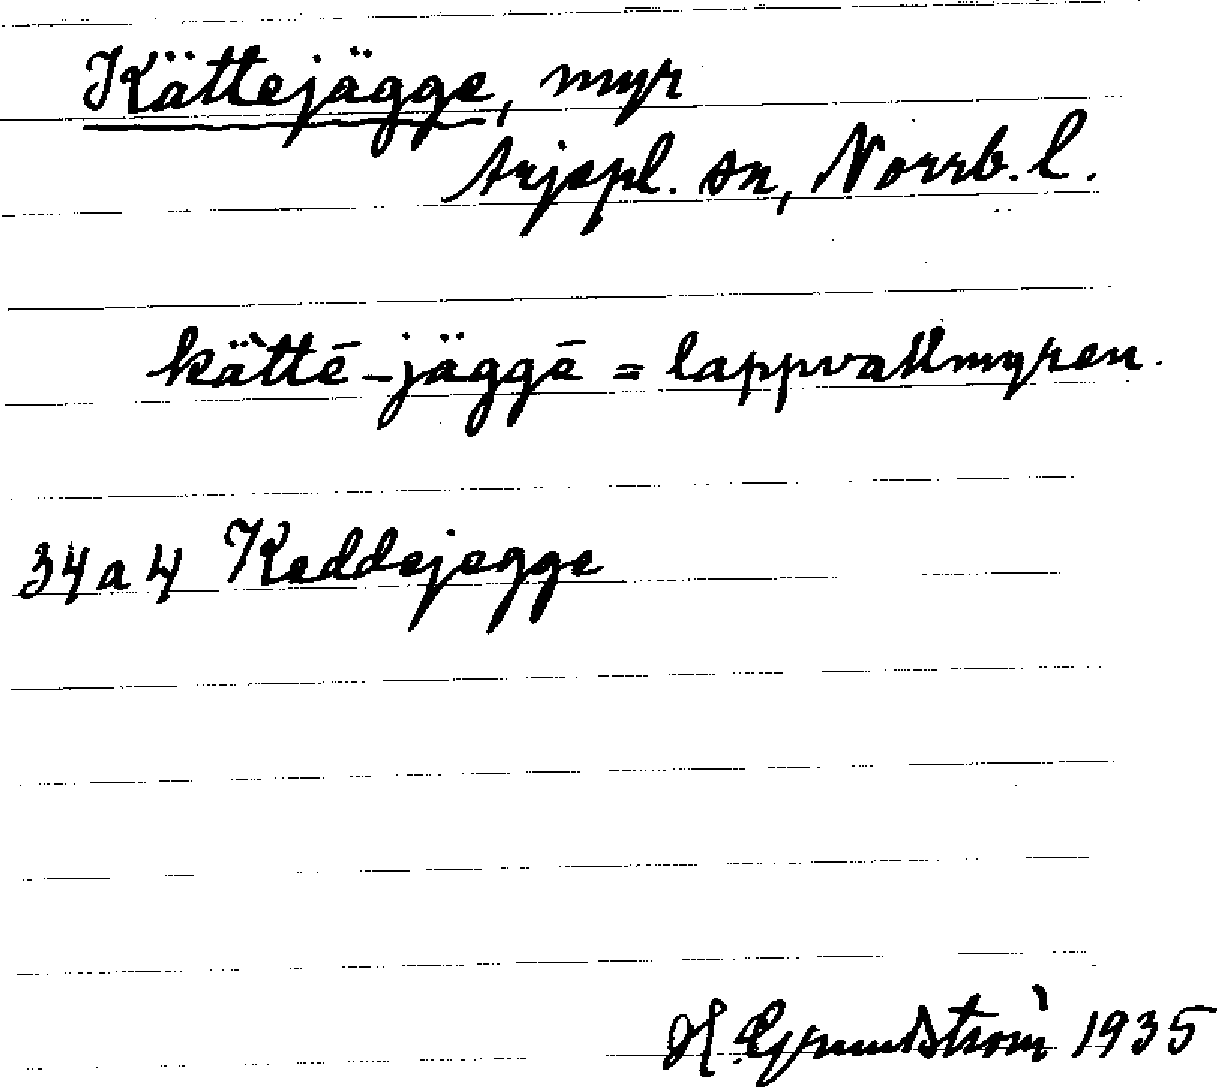 Kättejägge, myr
Arjepl. sn, Norrb. l.
kä̀ttē-jäggē = lappvallmyren.
34 a 4 Keddejegge
H Grundström 1935